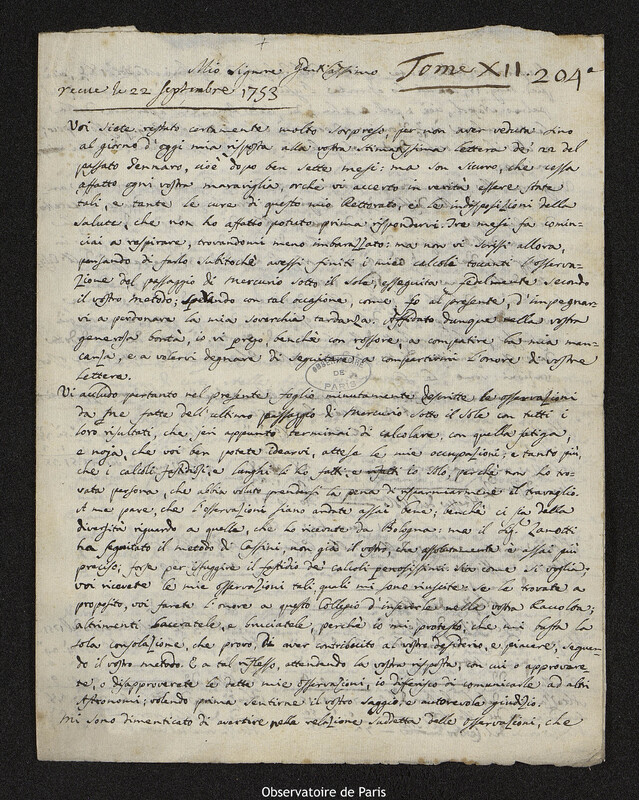 Mio Signore Gentilissimo Tome XII. 204ª
reçue le 22 Septembre 1753
Voi siete restato certamente molto sorpreso per non aver veduta sino
al giorno d'oggi mia risposta alla vostra stimatissima lettera dei 22 del
passato Gennaro, cioè dopo ben sette mesi: ma son sicuro, che cessa
affatto ogni vostra maraviglia, orchè vi accerto in verità essere state
tali, e tante le cure di questo mio Rettorato, e le indisposizioni della
salute, che non ho affatto potuto prima rispondervi. Tre mesi fa comin-
ciai a respirare, trovandomi meno imbarazzato: ma non vi scrissi allora,
pensando di farlo subitochè avessi finiti i miei calcoli toccanti l'osserva-
zione del passaggio di Mercurio sotto il Sole, eseguita fedelmente secondo
il vostro metodo; sperando con tal occasione, come fo al presente, d'impegnar-
vi a perdonare la mia soverchia tardanza. Affidato dunque nella vostra
generosa bontà, io vi prego, benchè con rossore, a compatire la mia man-
canza, e a volervi degnare di seguitare a compartirmi l'onore di vostre
lettere.
OBSERVATOIRE DE PARIS
Vi accludo pertanto nel presente foglio minutamente descritte le osservazioni
da me fatte dell'ultimo passaggio di Mercurio sotto il Sole con tutti i
loro risultati, che jeri appunto terminai di calcolare, con quella fatiga,
e noja, che voi ben potete idearvi, attese le mie occupazioni; e tanto più,
che i calcoli fastidiosi, e lunghi li ho fatti, e rifatti io solo, perchè non ho tro-
vata persona, che abbia voluto prendersi la pena di risparmiarmene il travaglio.
A me pare, che l'osservazioni siano andate assai bene, benchè ci sia della
diversità riguardo a quella, che ho ricevute da Bologna: ma il Sig.r Zanotti
ha seguitato il metodo di Cassini, non già il vostro, che assolutamente è assai più
preciso; forse per isfuggire il fastidio dei calcoli penosissimi. Sia come si voglia;
voi ricevete le mie osservazioni tali, quali mi sono riuscite: se le trovate a
proposito, voi farete l'onore a questo Collegio d'inserirle nella vostra Raccolta;
altrimenti laceratele, e bruciatele, perchè io mi protesto, che mi basta la
sola consolazione, che provo, di aver contribuito al vostro desiderio, e piacere, seguen-
do il vostro metodo. E a tal riflesso, attendendo la vostra risposta, con cui o approvare
te, o disapproverete le dette mie osservazioni, io differisco di comunicarle ad altri
Astronomi; volendo prima sentirne il vostro saggio, e autorevole giudizio.
Mi sono dimenticato di avertire nella relazione sudetta delle osservazioni, che
Observatoire de Paris